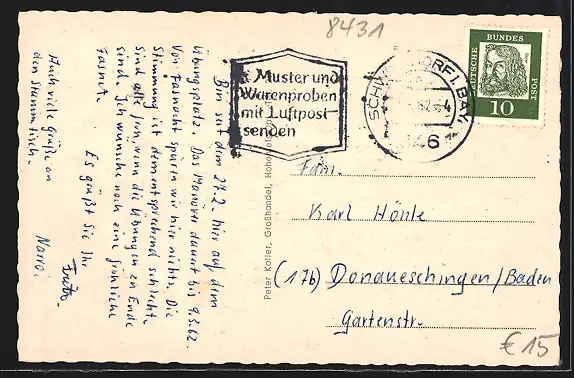 8431
Muster und
Warenproben
mit Luftpost-
senden
SCHWANDORF I. BAY.
DEUTSCHE BUNDES POST
10
Bin seit dem 27.2. hier auf dem
Übungsplatz. Das Manöver dauert bis 9.3.62.
Von Fasnacht spüren wir hier nichts. Die
Stimmung ist dementsprechend schlecht.
Sind alle froh, wenn die Übungen zu Ende
sind. Ich wünsche noch eine fröhliche
Fasnet.
Es grüßt Sie Ihr
Narro.
Auch viele Grüße an
den Stammtisch.
Peter Koller, Großhandel,
Fam.
Karl Hönle
(17b) Donaueschingen/Baden
Gartenstr.
€ 15